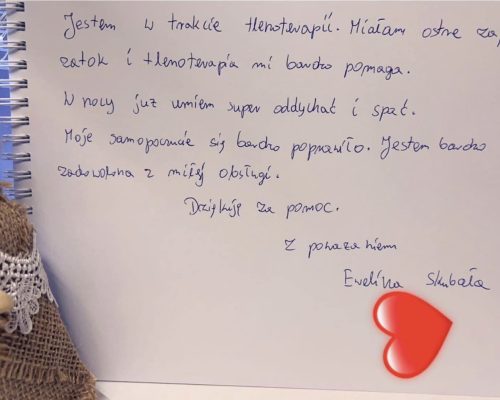 Jestem w trakcie tlenoterapii. Miałam ostre za
zatok i tlenoterapia mi bardzo pomaga.
W nocy już umiem super oddychać i spać.
Moje samopoczucie się bardzo poprawiło. Jestem bardzo
zadowolona z miłej obsługi.
Dziękuję za pomoc.
Z poważaniem
Ewelina Skubała